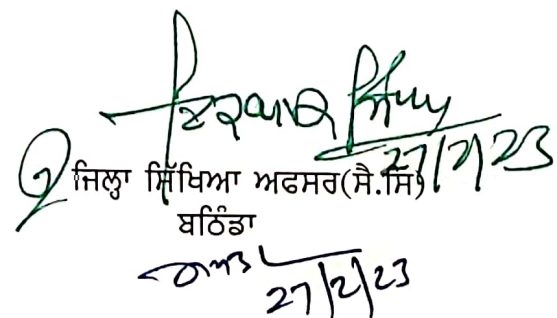 27/2/23
ਜਿਲ੍ਹਾ ਸਿੱਖਿਆ ਅਫਸਰ(ਸੈ.ਸਿ)
ਬਠਿੰਡਾ
27/2/23